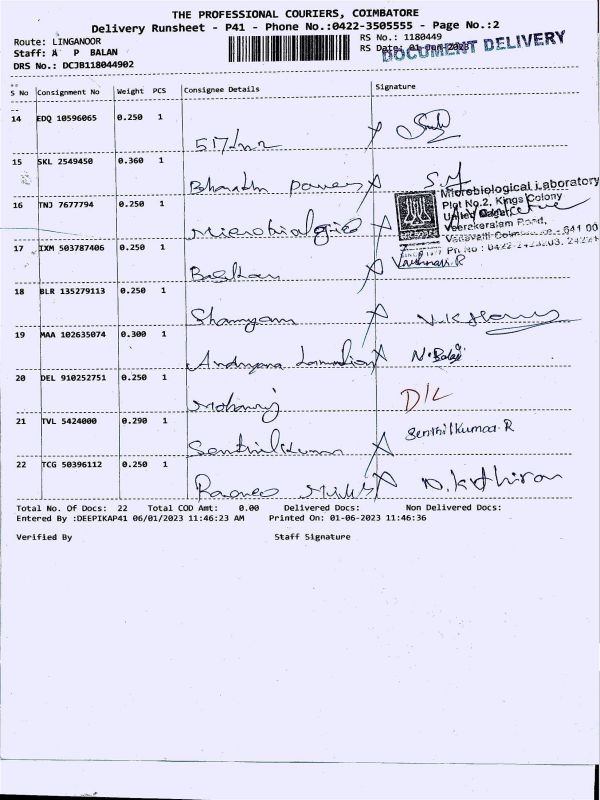 THE PROFESSIONAL COURIERS, COIMBATORE
Delivery Runsheet - P41 - Phone No.:0422-3505555 - Page No.:2
Route: LINGANOOR
RS No.: 1180449
Staff: A P BALAN
RS Date: 01-Jun-2023
DOCUMENT DELIVERY
DRS No.: DCJB118044902
S No Consignment No Weight PCS Consignee Details Signature
14 EDQ 10596065 0.250 1
15 SKL 2549450 0.360 1
Bharath Power S.M
16 TNJ 7677794 0.250 1
Microbiological Laboratory
Plot No.2, Kings Colony
United Nagar,
Veerakeralam Road,
17 IXM 503787406 0.250 1
Baskar Vaishnavi.R
18 BLR 135279113 0.250 1
Shanyam
19 MAA 102635074 0.300 1
N.Balaji
20 DEL 910252751 0.250 1
D/L
21 TVL 5424000 0.290 1
Senthilkumar Senthilkumar.R
22 TCG 50396112 0.250 1
N.kathiran
Total No. Of Docs: 22 Total COD Amt: 0.00 Delivered Docs: Non Delivered Docs:
Entered By :DEEPIKAP41 06/01/2023 11:46:23 AM Printed On: 01-06-2023 11:46:36
Verified By Staff Signature